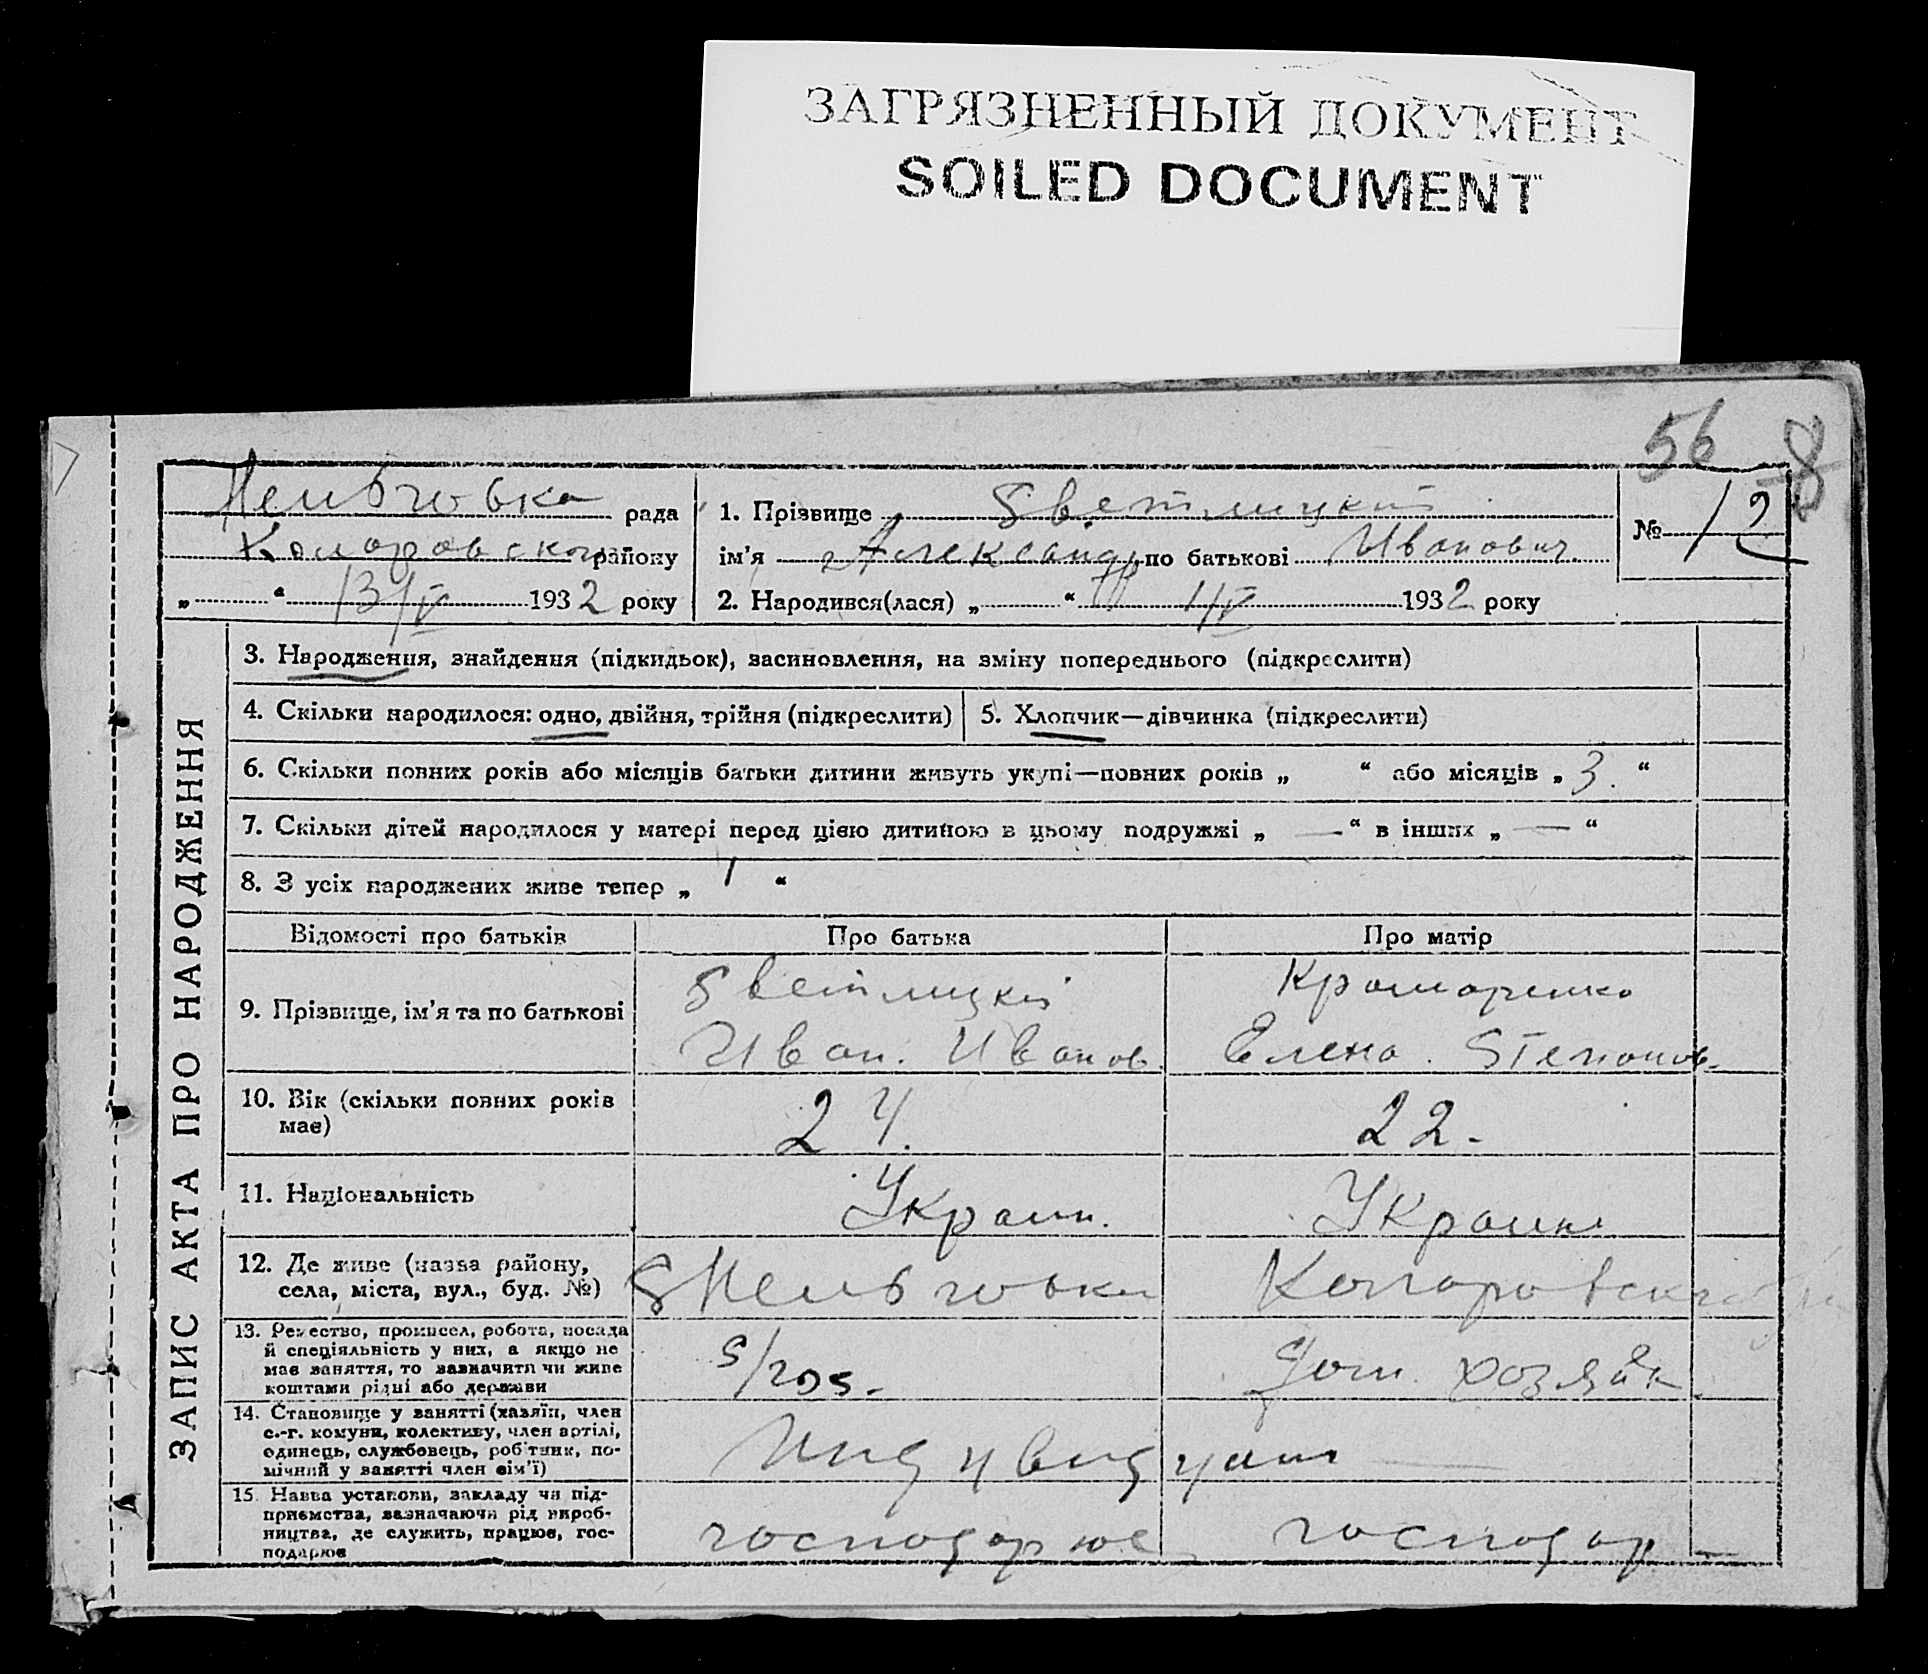 ЗАГРЯЗНЕННЫЙ ДОКУМЕНТ
SOILED DOCUMENT
56 8
рада
району
„ “ 13/V 1932 року
1. Прізвище Светлицкий
ім’я Александр по батькові Иванович
2. Народився(лася) „ “ 1/V 1932 року
№ 12
ЗАПИС АКТА ПРО НАРОДЖЕННЯ
3. Народження, знайдення (підкидьок), засиновлення, на зміну попереднього (підкреслити)
4. Скільки народилося: одно, двійня, трійня (підкреслити)
5. Хлопчик—дівчинка (підкреслити)
6. Скільки повних років або місяців батьки дитини живуть укупі—повних років „ “ або місяців „ 3. “
7. Скільки дітей народилося у матері перед цією дитиною в цьому подружжі „ — “ в інших „ — “
8. З усіх народжених живе тепер „ 1 “
Відомості про батьків
Про батька
Про матір
9. Прізвище, ім’я та по батькові
Светлицкий
Иван. Иванов.
Крамаренко
Елена. Степанов.
10. Вік (скільки повних років
має)
24.
22.
11. Національність
Украин.
Украин
12. Де живе (назва району,
села, міста, вул., буд. №)
13. Ремество, промисел, робота, посада
й спеціяльність у них, а якщо не
має заняття, то зазначити чи живе
коштами рідні або держави
Дом. хозяйк.
14. Становище у занятті (хазяїн, член
с.-г. комуни, колективу, член артілі,
одинець, службовець, робітник, по-
мічний у занятті член сім’ї)
Индувидуаль
15. Назва установи, закладу чи під-
приємства, зазначаючи рід вироб-
ництва, де служить, працює, гос-
подарює
господарює
господар